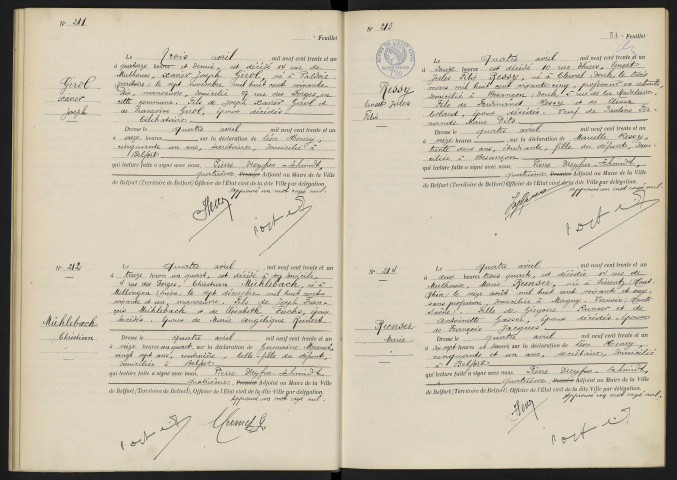 N° 211
Girol
Xavier
Joseph
Le trois avril mil neuf cent trente et un
à quatorze heures et demie, est décédé 14 rue de
Mulhouse, Xavier Joseph Girol, né à
le sept novembre mil huit cent soixante
manœuvre, domicilié 27 rue des Forges,
cette commune. Fils de Joseph Xavier Girol et
de Françoise Girol, époux décédés.
Célibataire
Dressé le quatre avril mil neuf cent trente et un
à onze heures sur la déclaration de Léon Henry,
cinquante un ans, secrétaire, domicilié à
Belfort
qui lecture faite a signé avec nous, Pierre Dreyfus-Schmidt,
quatrième Premier Adjoint au Maire de la Ville
de Belfort (Territoire de Belfort) Officier de l'Etat civil de la dite Ville par délégation.
Approuvé un mot rayé nul.
Henry
N° 212
Mühlebach
Christian
Le quatre avril mil neuf cent trente et un
à treize heures un quart, est décédé à son domicile,
4 rue des Forges, Christian Mühlebach, né à
Mellingen (Suisse) le sept décembre mil huit cent
soixante et un, manœuvre. Fils de Joseph
Mühlebach et de Elisabeth Fuchs, époux
décédés. Epoux de Marie Angélique
Dressé le quatre avril mil neuf cent trente et un
à onze heures un quart sur la déclaration de Germaine
vingt sept ans, couturière, belle-fille du défunt,
domiciliée à Belfort
qui lecture faite a signé avec nous, Pierre Dreyfus-Schmidt,
quatrième Premier Adjoint au Maire de la Ville
de Belfort (Territoire de Belfort) Officier de l'Etat civil de la dite Ville par délégation.
Approuvé un mot rayé nul.
N° 213
54e Feuillet
Ressy
Ernest Jules
Félix
Le quatre avril mil neuf cent trente et un
à douze heures est décédé rue Thiers, Ernest
Jules Félix Ressy, né à Clerval (Doubs) le trois
mars mil huit cent soixante cinq, professeur en retraite,
domicilié à Besançon (Doubs)
Fils de Ferdinand Ressy et de
époux décédés. Veuf de Pauline
Marie
Dressé le quatre avril mil neuf cent trente et un
à seize heures sur la déclaration de Marcelle Ressy,
trente deux ans, étudiante, fille du défunt,
domiciliée à Besançon
qui lecture faite a signé avec nous, Pierre Dreyfus-Schmidt,
quatrième Premier Adjoint au Maire de la Ville
de Belfort (Territoire de Belfort) Officier de l'Etat civil de la dite Ville par délégation.
Approuvé un mot rayé nul.
N° 214
Reunser
Marie
Le quatre avril mil neuf cent trente et un
à deux heures trois quarts, est décédée 14 rue de
Mulhouse, Marie Reunser, née à (Haut
Rhin) le seize août mil huit cent soixante et onze,
sans profession, domiciliée à Magny-Vernois (Haute
Saône). Fille de Grégoire Reunser et de
Antoinette Gasser, époux décédés. Epouse
de François Jacques
Dressé le quatre avril mil neuf cent trente et un
à heures et demie, sur la déclaration de Léon Henry,
cinquante et un ans, secrétaire, domicilié
à Belfort
qui lecture faite a signé avec nous, Pierre Dreyfus-Schmidt,
quatrième Premier Adjoint au Maire de la Ville
de Belfort (Territoire de Belfort) Officier de l'Etat civil de la dite Ville par délégation.
Approuvé un mot rayé nul.
Henry